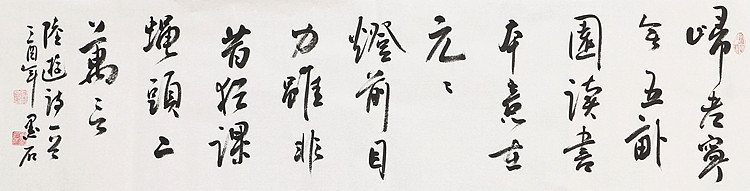 歸老寧
無五畝
園讀書
本意在
元〻
燈前目
力雖非
昔猶課
蠅頭二
萬言
陸遊詩一首
酉年 墨石